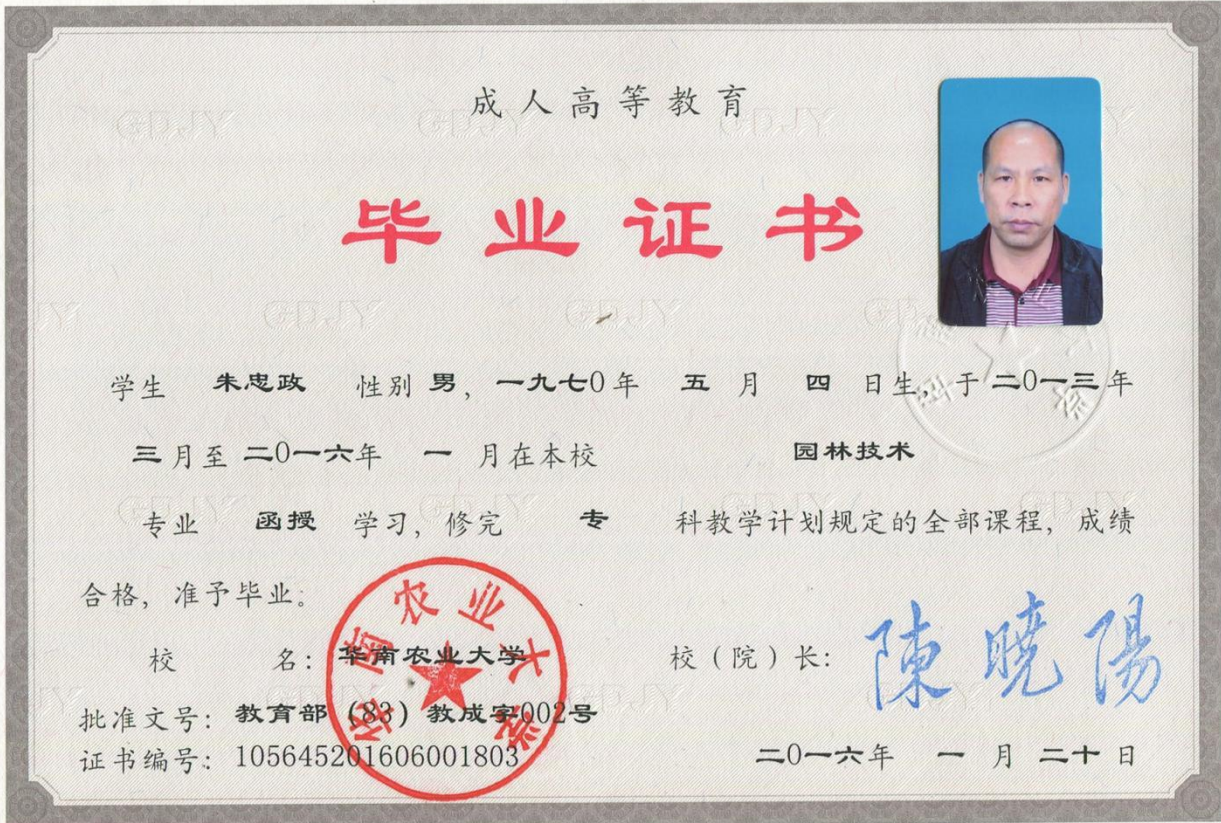 成人高等教育
毕业证书
学生 朱忠政 性别 男，一九七0年 五 月 四 日生，于 二0一三年
三月至 二0一六年 一 月在本校 园林技术
专业 函授 学习，修完 专 科教学计划规定的全部课程，成绩
合格，准予毕业。
华南农业大学
校 名：华南农业大学 校（院）长：陳曉陽
批准文号：教育部（83）教成字002号
证书编号：105645201606001803 二0一六年 一 月 二十 日
GDJY